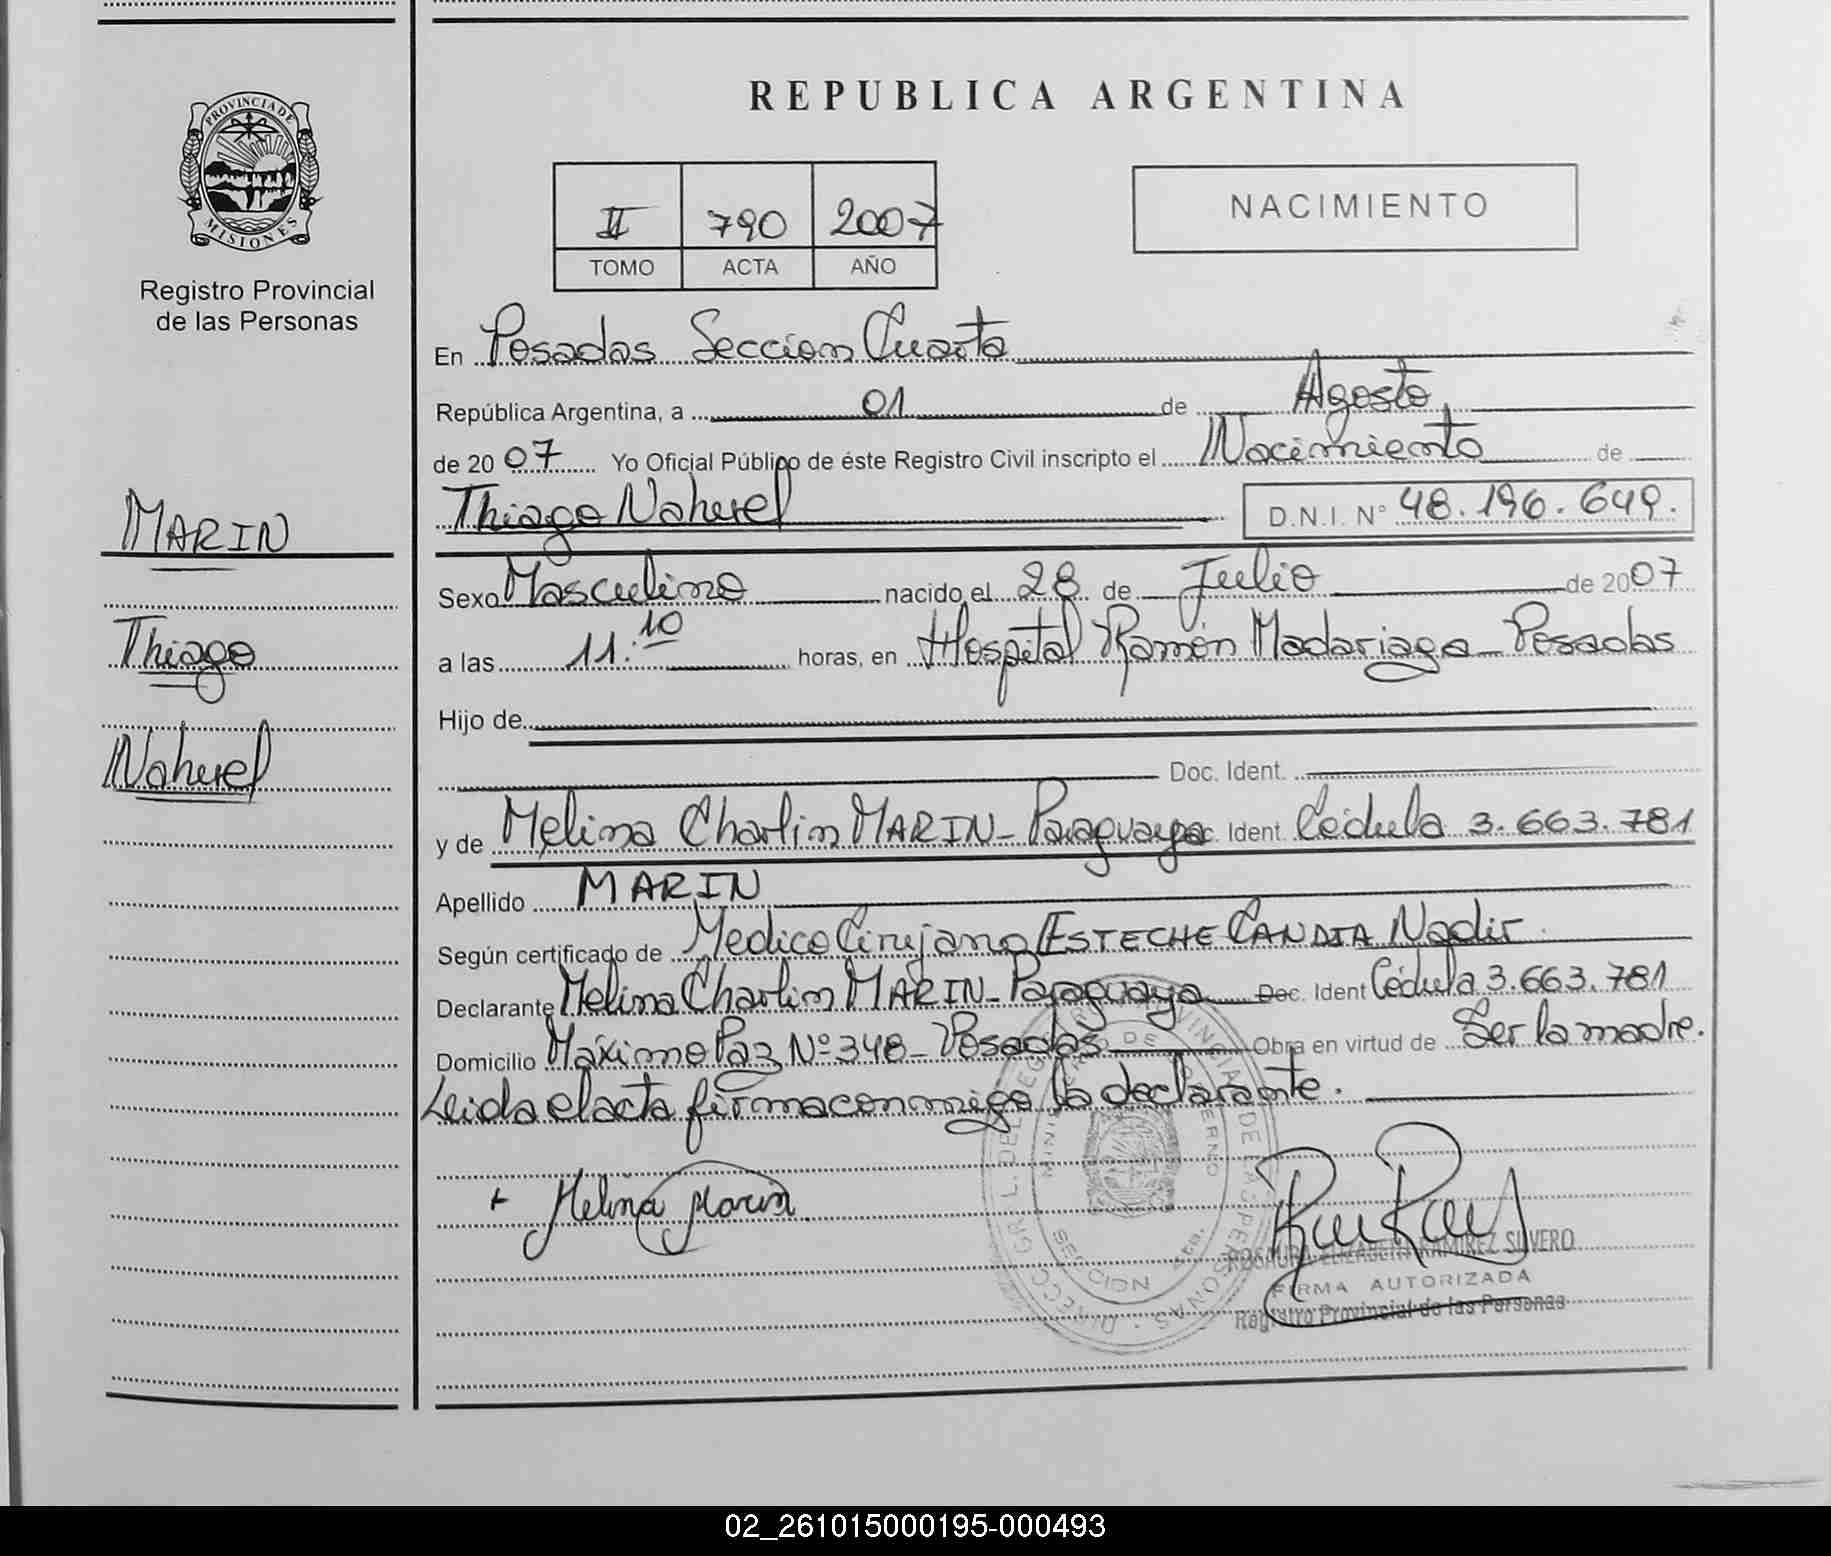 REPUBLICA ARGENTINA
PROVINCIA DE
MISIONES
Registro Provincial
de las Personas
II 790 2007
TOMO ACTA AÑO
NACIMIENTO
En Posadas Seccion Cuarta
República Argentina, a 01 de Agosto
de 20 07 Yo Oficial Público de éste Registro Civil inscripto el Nacimiento de
Thiago Nahuel D.N.I. N° 48.196.649.
MARIN
Thiago
Nahuel
Sexo Masculino nacido el 28 de Julio de 2007
a las 11:10 horas, en Hospital Ramón Madariaga - Posadas
Hijo de
Doc. Ident.
y de Melina Charlin MARIN - Paraguaya c. Ident. Cédula 3.663.781
Apellido MARIN
Según certificado de Medico Cirujano ESTECHE CANDIA Nadir.
Declarante Melina Charlin MARIN - Paraguaya Doc. Ident Cédula 3.663.781
Domicilio Máximo Paz Nº 348 - Posadas Obra en virtud de Ser la madre.
Leida el acta firma conmigo la declarante.
+ Melina Marin
SECCION 4ta.
ROSAURA ELIZABETH RAMIREZ SILVERO
FIRMA AUTORIZADA
Registro Provincial de las Personas
02_261015000195-000493